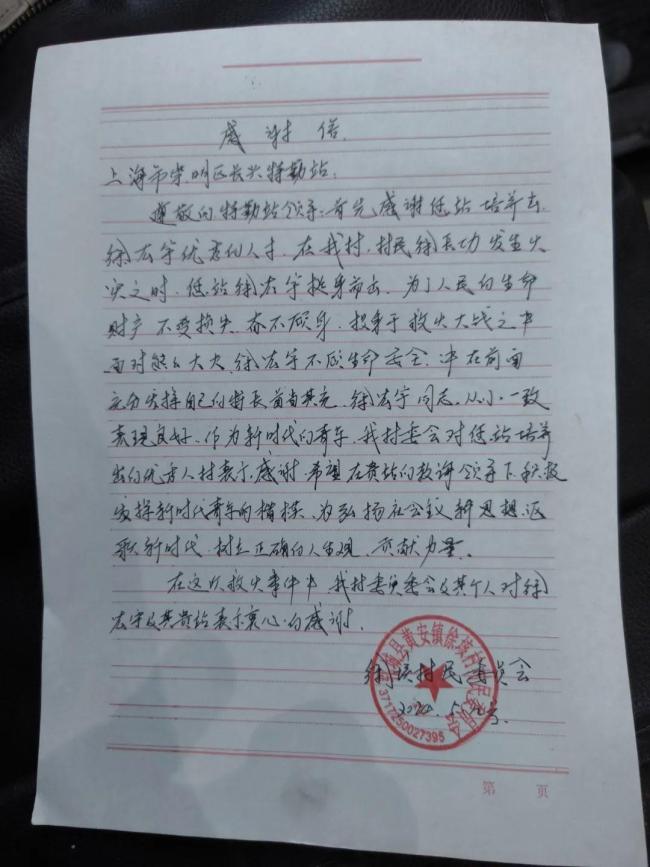 感谢信
上海市崇明区长兴特勤站:
遵敬的特勤站领导:首先感谢您站培养出
徐宏宇优秀的人才,在我村,村民徐长功发生火
灾之时,您站徐宏宇挺身而出,为了人民的生命
财产不受损失,奋不顾身,投身于救火大战之中
面对熊熊大火,徐宏宇不顾生命安全,冲在前面
充分发挥自己的特长首当其充,徐宏宇同志,从小一致
表现良好,作为新时代的青年,我村委会对您站培养
出的优秀人材表示感谢,希望在贵站的教诲领导下积极
发挥新时代青年的楷模,为弘扬社会主义新思想,讴
歌新时代,树立正确的人生观,贡献力量。
在这次救火事件中,我村委员委会及其个人对徐
宏宇及其贵站表示衷心的感谢。
徐垓村民委员会
城县黄安镇徐垓村村民委员会
3717250027395
第 页